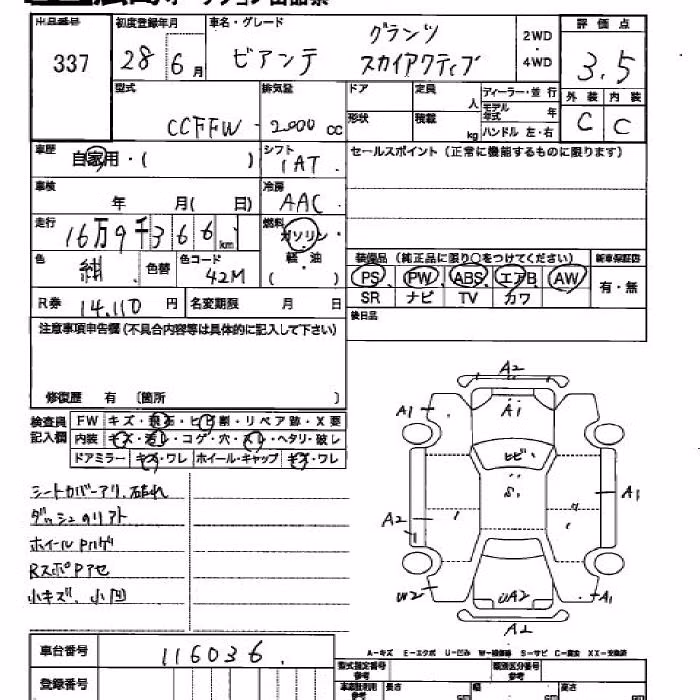 出品番号 初度登録年月 車名・グレード 評価点
337 28年6月 ビアンテ グランツ スカイアクティブ 2WD・4WD 3.5
型式 排気量 ドア 定員 人 ディーラー・並行 外装 内装
CCFFW 2000cc 形状 積載 kg モデル年式 年 ハンドル 左・右 C C
車歴 自家用・( ) シフト 1AT セールスポイント(正常に機能するものに限ります)
車検 年 月( 日) 冷房 AAC
走行 16万9千366km 燃料 ガソリン・軽・油 ( )
色 紺 色替 色コード 42M 装備品 (純正品に限り○をつけてください) 新車保証書
PS PW ABS エアB AW 有・無
R券 14,110円 名変期限 月 日 SR ナビ TV カワ
注意事項申告欄(不具合内容等は具体的に記入して下さい) 後日品
修復歴 有 〔箇所 〕
検査員記入欄 FW キズ・飛石・ヒビ割・リペア跡・X要
内装 キズ・汚レ・コゲ・穴・スレ・ヘタリ・破レ
ドアミラー キズ・ワレ ホイール・キャップ キズ・ワレ
A2
A1 A1
ヒビ
S1
A1
A2
W2 UA2 A1
A2
シートカバーアリ、
ダッシュ
ホイール
小キズ、小凹
A-キズ E-エクボ U-凹み W-補修跡 S-サビ C-腐食 XX-交換済
車台番号 116036
登録番号
型式指定番号 参考 類別区分番号 参考
長さ 幅 高さ